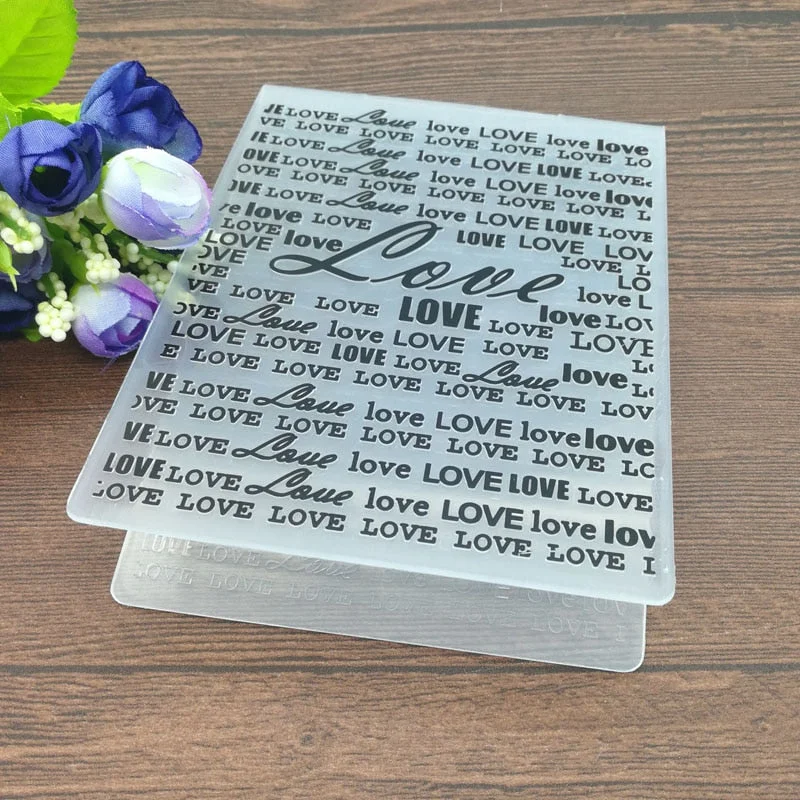 JE LOVE Love love LOVE love love
VE LOVE LOVE LOVE LOVE LOVE LOVE LO
VE LOVE Love love LOVE LOVE LOVE
OVE LOVE Love love LOVE love love
LOVE LOVE LOVE LOVE LOVE LOVE L
OVE LOVE Love love LOVE LOVE LOVE
ve love LOVE
LOVE LOVE LOV
LOVE love
Love
LOVE L
OVE
LO
VE
love L
VE LOVE LOVE LOVE LOVE love LOV
OVE LOVE Love love LOVE LOVE LOVE
E LOVE LOVE LOVE LOVE Love love L
LOVE LOVE LOVE LOVE LOVE LOV
VE LOVE Love love LOVE love love
OVE LOVE LOVE LOVE LOVE LOVE LO
VE LOVE Love love LOVE LOVE LOVE
LOVE LOVE Love love LOVE love lov
LOVE LOVE LOVE LOVE LOVE LOVE I
LOVE Love
LOVE LOVE LOVE LOVE LOVE I